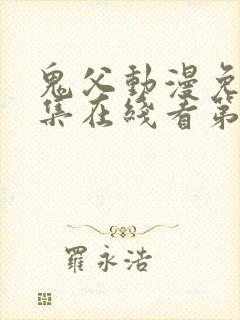 鬼父動漫免
集在綫看第
羅永浩